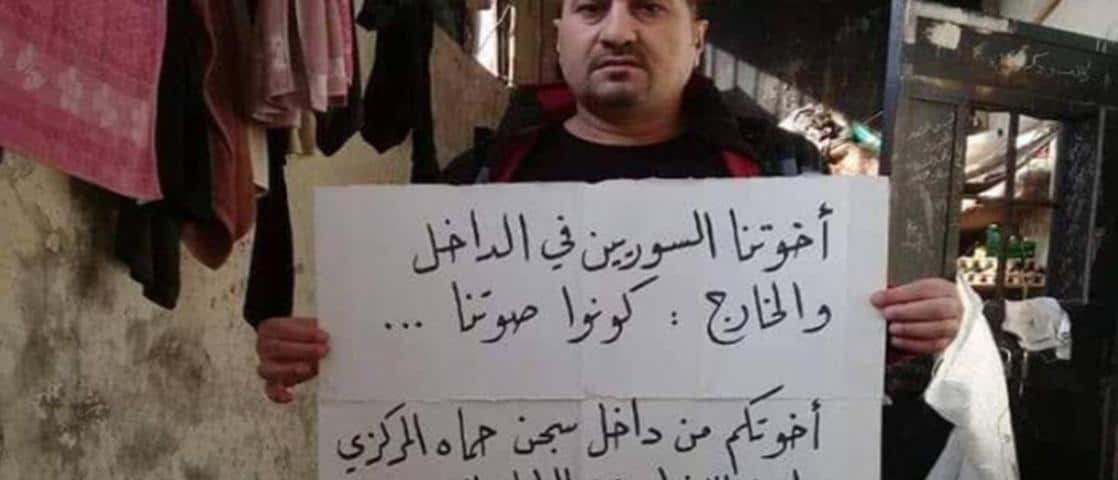 أخوتنا السوريين في الداخل
والخارج : كونوا صوتنا ...
أخوتكم من داخل سجن حماه المركزي